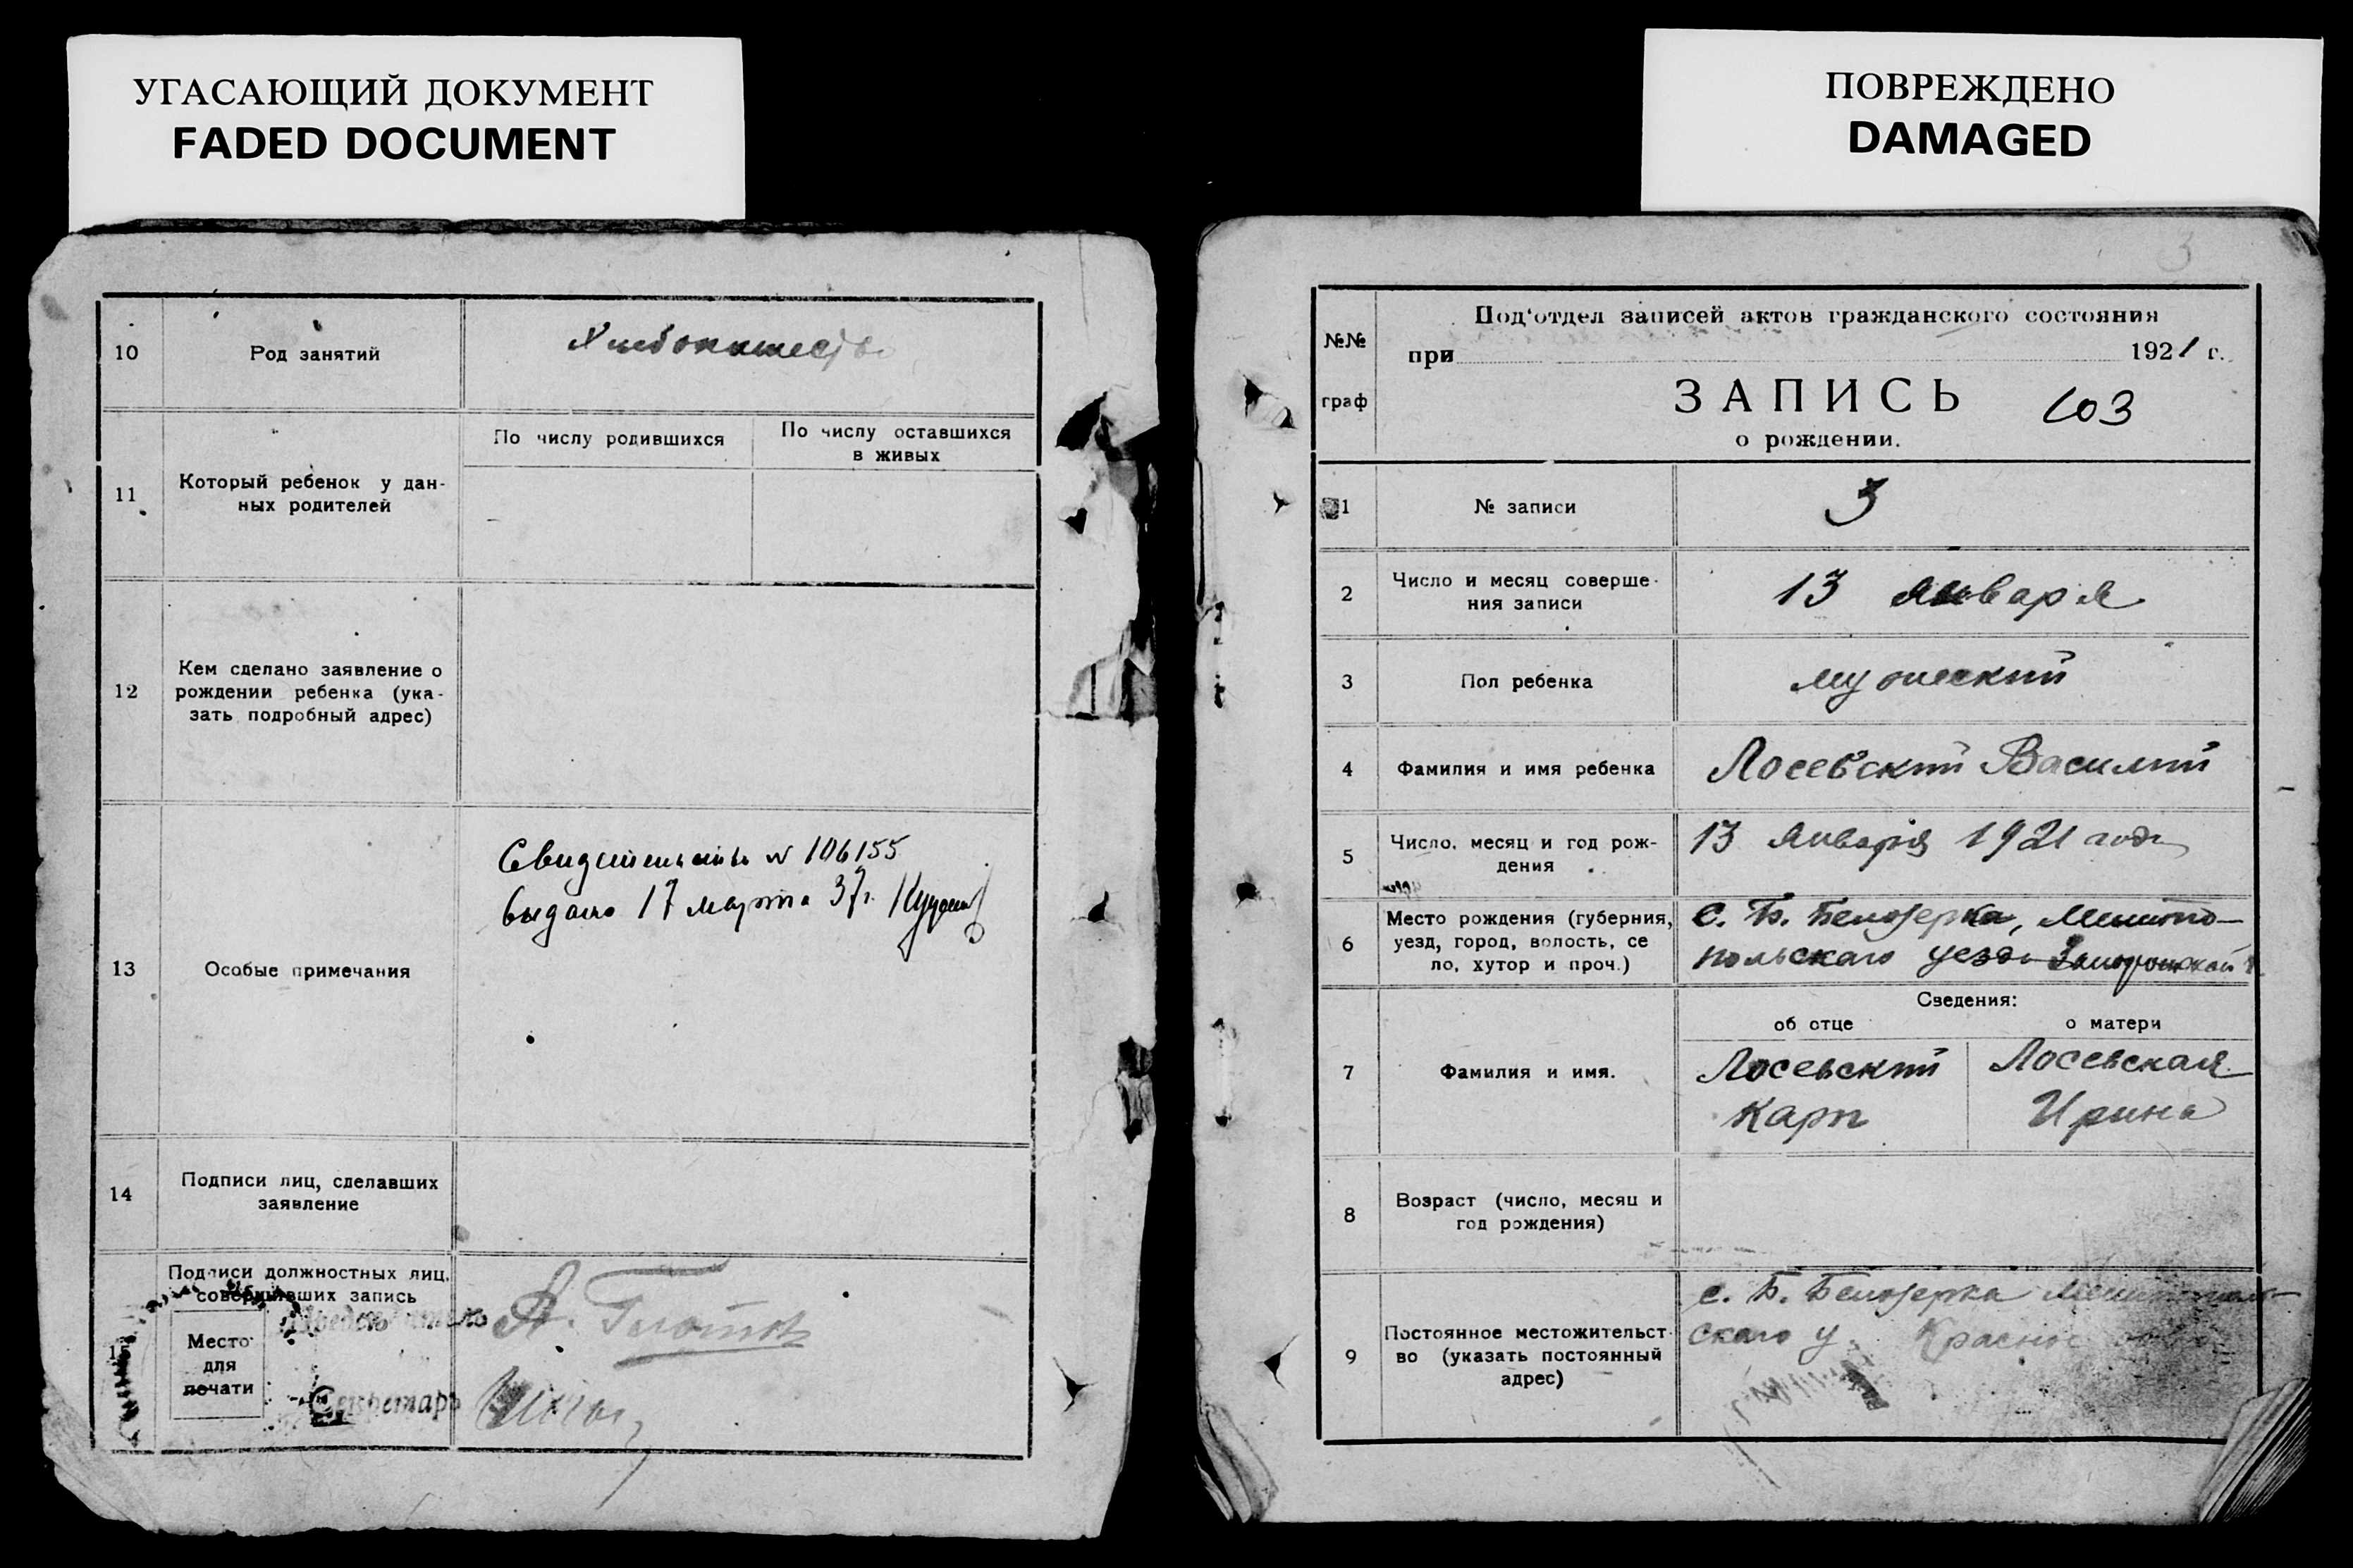 УГАСАЮЩИЙ ДОКУМЕНТ
FADED DOCUMENT
ПОВРЕЖДЕНО
DAMAGED
10
Род занятий
Хлебопашество
11
Который ребенок у дан-
ных родителей
По числу родившихся
По числу оставшихся
в живых
12
Кем сделано заявление о
рождении ребенка (ука-
зать подробный адрес)
13
Особые примечания
Свидетельство № 106155
выдано 17 марта 37г.
14
Подписи лиц, сделавших
заявление
Подписи должностных лиц,
совершивших запись
Место
для
печати
Председатель
Секретарь
3
№№
граф
Под'отдел записей актов гражданского состояния
при 1921 г.
ЗАПИСЬ
103
о рождении.
1
№ записи
3
2
Число и месяц соверше-
ния записи
13 января
3
Пол ребенка
мужеский
4
Фамилия и имя ребенка
Лосевский Василий
5
Число, месяц и год рож-
дения
13 января 1921 года
6
Место рождения (губерния,
уезд, город, волость, се
ло, хутор и проч.)
с. Б. Белозерка, Мелито-
польскаго уезда Запорожской
Сведения:
об отце
о матери
7
Фамилия и имя.
Лосевский
Карп
Лосевская
Ирина
8
Возраст (число, месяц и
год рождения)
9
Постоянное местожительст-
во (указать постоянный
адрес)
с. Б. Белозерка Мелитополь
скаго у.